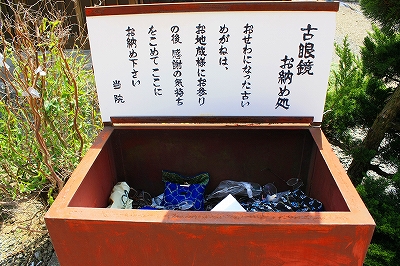 古眼鏡
お納め処
おせわになった古い
めがねは、
お地蔵様にお参り
の後、感謝の気持ち
をこめてここに
お納め下さい
当院